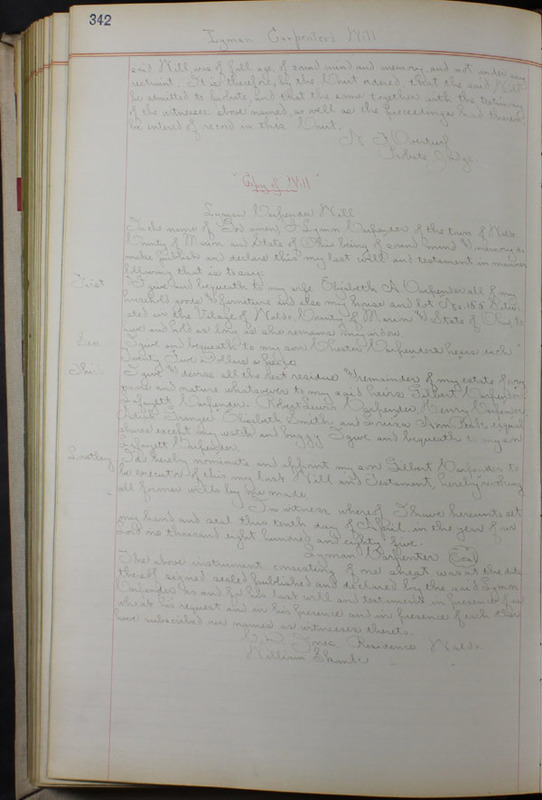 342
Lyman Carpenters Will
said Will, was of full age, of sound mind and memory, and not under any
restraint. It is therefore, by the Court ordered that the said Will
be admitted to probate, and that the same together with the testimony
of the witnesses above named, as well as the proceedings had thereon
be entered of record in this Court.
Probate Judge.
"Copy of Will"
Lyman Carpenter Will
In the name of God amen I Lyman Carpenter of the town of Waldo
County of Marion and State of Ohio being of sound mind & memory do
make publish and declare this my last will and testament in manner
following that is to say:
First I give and bequeath to my wife Elizabeth A Carpenter all of my
household goods & furniture and also my house and lot No. Situ-
ated in the Village of Waldo County of Marion & State of Ohio to
have and hold as long as she remains my widow
I give and bequeath to my son Chester Carpenters heirs each
Twenty Five Dollars
I give & devise all the rest residue & remainder of my estate of every
name and nature whatsoever to my said heirs Gilbert Carpenter
Lafayett Carpenter Robert Lewis Carpenter Henry Carpenter
Elizabeth Smith and equal
share except my watch and buggy I give and bequeath to my son
Lafayett Carpenter
Lastley I do hereby nominate and appoint my son Gilbert Carpenter to
be executor of this my last Will and Testament, hereby revoking
all former wills by me made
In witness whereof I have hereunto set
my hand and seal this tenth day of April in the year of our
Lord one thousand eight hundred and eighty five.
Lyman Carpenter (Seal)
The above instrument consisting of one sheet was at the date
thereof signed sealed published and declared by the said Lyman
Carpenter as and for his last will and testament in presence of us
who at his request and in his presence and in presence of each other
have subscribed our names as witnesses thereto.
Residence Waldo
William